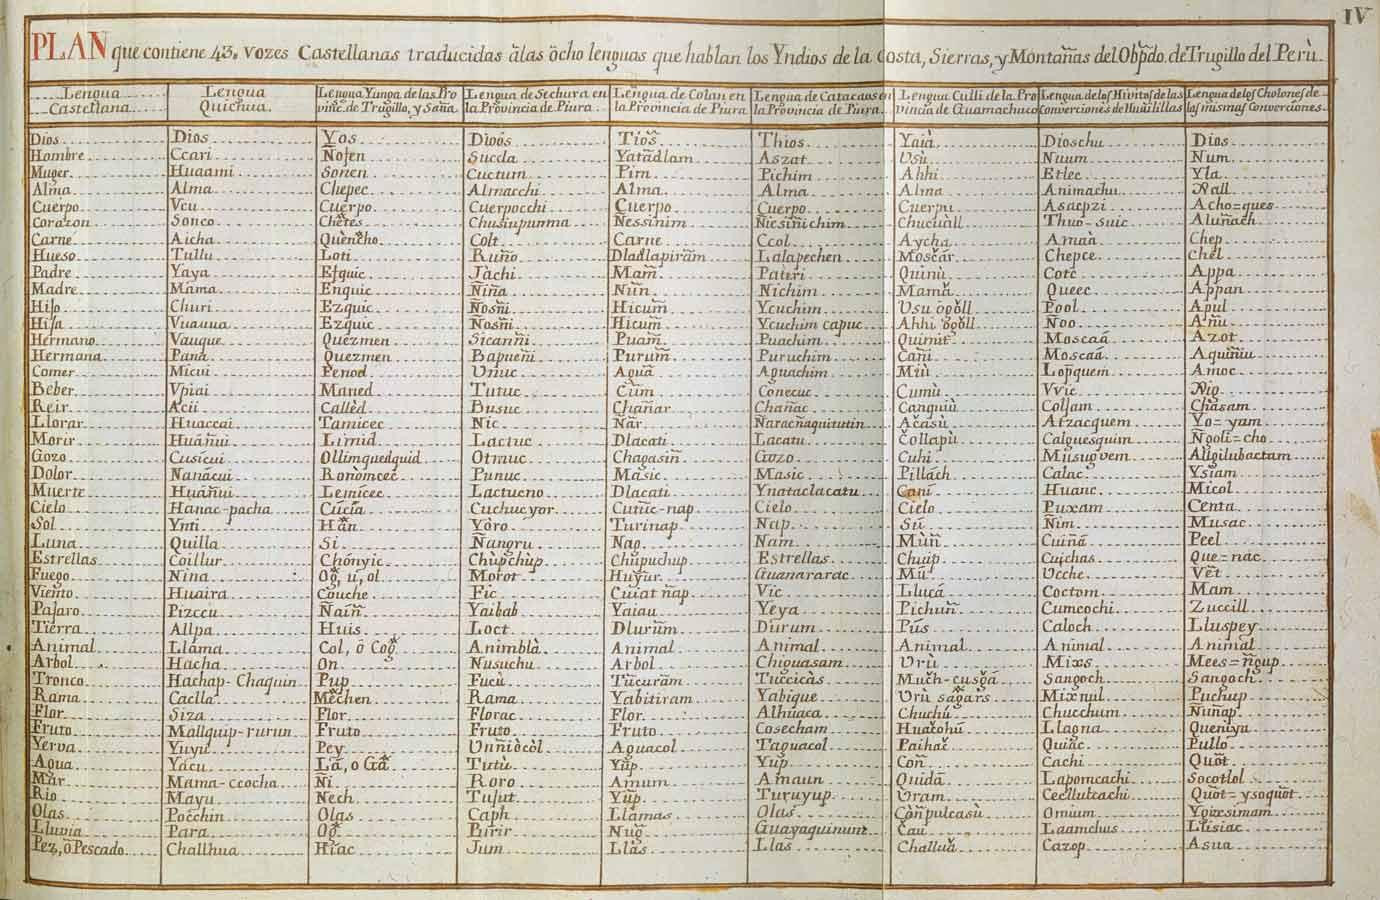 IV
PLAN que contiene 43. vozes Castellanas traducidas àlas öcho lenguas que hablan los Yndios de la Costa, Sierras, y Montañas del Obpdo. de Trugillo del Perù.
Lengua Castellana. | Lengua Quichua. | Lengua Yunga de las Provinc. de Trugillo, y Saña. | Lengua de Sechura en la Provincia de Piura. | Lengua de Colan en la Provincia de Piura | Lengua de Catacaos en la Provincia de Piura. | Lengua Culli de la Provincia de Guamachuco | Lengua de los Hivitos de las Converciones de Huailillas | Lengua de los Cholones de las mismas Converciones
Dios | Dios | Yos | Dioós | Tios̃ | Thios | Yaià | Dioschu | Dios
Hombre | Ccari | Ñofen | Succla | Yatãdlam | Aszat | Usù | Nuum | Num
Muger | Huaami | Sonen | Cuctum | Pim | Pichim | Ahhi | Etlec | Yla
Alma | Alma | Chepec | Almacchi | Alma | Alma | Alma | Animachu | Ñall
Cuerpo | Vcu | Cuerpo | Cuerpocchi | Cuerpo | Cuerpo | Cuerpu | Asacpzi | Acho=ques
Corazon | Sonco | Chetes | Chusiupunma | Ñessinim | Ñiesiñichim | Chucuàll | Thuo-suic | Aluñach
Carne | Aicha | Quèncho | Colt | Carne | Ccol | Aycha | Amaà | Chep
Hueso | Tullu | Loti | Ruño | Dladlapirãm | Lalapechen | Moscár | Chepce | Chel
Padre | Yaya | Efquic | Jàchi | Mam̃ | Patiri | Quinù | Cotc | Appa
Madre | Mama | Enquic | Niña | Nũn | Nichim | Mamǎ | Queec | Appan
Hijo | Churi | Ezquic | Ños̃ñi | Hicum̃ | Ycuchim | Usu ogǒll | Pool | Apul
Hija | Vuauua | Ezquic | Ños̃ñi | Hicum̃ | Ycuchim capuc | Ahhi ogǒll | Ñoo | Añu
Hermano | Vauque | Quezmen | Sicanñi | Puam̃ | Puachim | Quimit | Moscaá | Azot
Hermana | Pana | Quezmen | Bapueñi | Purum̃ | Puruchim | Cañi | Moscaá | Aquiñiu
Comer | Micui | Fenod | Unuc | Aguã | Aguachim | Miù | Lopquem | Amoc
Beber | Vpiai | Maned | Tutuc | Cũm | Conecuc | Cumù | Vvic | Ñig
Reir | Acii | Callèd | Busuc | Chañar | Chañac | Canquiù | Colljam | Chãsam
Llorar | Huaccai | Tamicec | Nic | Ñãr | Ñaracñaquitutin | Ačasù | Atzacquem | Yo=yam
Morir | Huañui | Limid | Lactuc | Dlacati | Lacatu | Čollapù | Calquesquim | Ñgoli=cho
Gozo | Cusicui | Ollimquedquid | Otmuc | Chagasiñ | Gozo | Cuhi | Mūsugvem | Alligilubactam
Dolor | Nanácui | Ronòmcec | Punuc | Masic | Masic | Pillách | Calac | Ysiam
Muerte | Huañui | Lemicec | Lactucno | Dlacati | Ynataclacatu | Caní | Huanc | Micol
Cielo | Hanac-pacha | Cucía | Cuchucyor | Cutũc-nap | Cielo | Cielo | Puxam | Centa
Sol | Ynti | Hǎn | Yòro | Turinap | Nap | Sú | Ñim | Musac
Luna | Quilla | Si | Ñangru | Nag | Nam | Mũñ | Cuiñá | Peel
Estrellas | Coillur | Chónyic | Chùpchup | Chũpuchup | Estrellas | Chuip | Cuichas | Que=nac
Fuego | Nina | Og̃, ú, ol | Morot | Huỹur | Guanararac | Mú | Ucche | Vet
Viento | Huaira | Còuche | Fic | Cuiat ñap | Vic | Llucá | Coctom | Mam
Pajaro | Pizccu | Ñaiñ | Yaibab | Yaiau | Yeya | Pichuñ | Cumcochi | Zuccill
Tierra | Allpa | Huis | Loct | Dlurũm | Durum | Pús | Caloch | Lluspey
Animal | Llama | Col, ò Cog̃ | Animblà | Animal | Animal | Animal | Animal | Animal
Arbol | Hacha | On | Nusuchu | Arbol | Chiguasam | Urù | Mixs | Mees=ñgup
Tronco | Hachap-Chaquin | Pup | Fucù | Tũcurãm | Tuccicàs | Mučh-cusgǎ | Sangoch | Sangoch
Rama | Caclla | Mečhen | Rama | Yabitiram | Yabique | Urù sagǎrs | Mixnul | Puchup
Flor | Siza | Flor | Florac | Flor | Alhuaca | Chuchú | Chucchum | Ñuñap
Fruto | Mallquip-rurun | Fruto | Fruto | Fruto | Cosecham | Huačohú | Llagna | Queniya
Yerva | Yuyu | Pey | Unñiòcòl | Aguacol | Taguacol | Paihač | Quiac | Pullo
Agua | Yacu | Lã, o Gã | Tutù | Yũp | Yup | Coñ | Cachi | Quõt
Mar | Mama-ccocha | Ni | Roro | Amum | Amaun | Quidà | Lapomcachi | Socotlol
Rio | Mayu | Nech | Tufut | Yũp | Turuyup | Uram | Cecllutcachi | Quõt=ysoquõt
Olas | Poččhin | Olas | Caph | Llamas | Olas | Còñpulcasù | Omium | Ygixsimam
Lluvia | Para | Og̃ | Purir | Nug̃ | Guayaquinum | Čau | Laamchus | Llisiac
Pez, ò Pescado | Challhua | Hiac | Jum | Llas | Llas | Challuǎ | Cazop | Asua